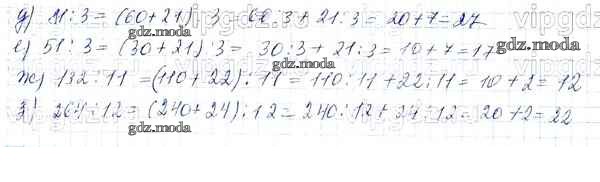 д) 81:3 = (60+21):3 = 60:3 + 21:3 = 20+7 = 27
е) 51:3 = (30+21):3 = 30:3 + 21:3 = 10+7 = 17
gdz.moda
ж) 132:11 = (110+22):11 = 110:11 + 22:11 = 10+2 = 12
gdz.moda
з) 264:12 = (240+24):12 = 240:12 + 24:12 = 20+2 = 22
gdz.moda